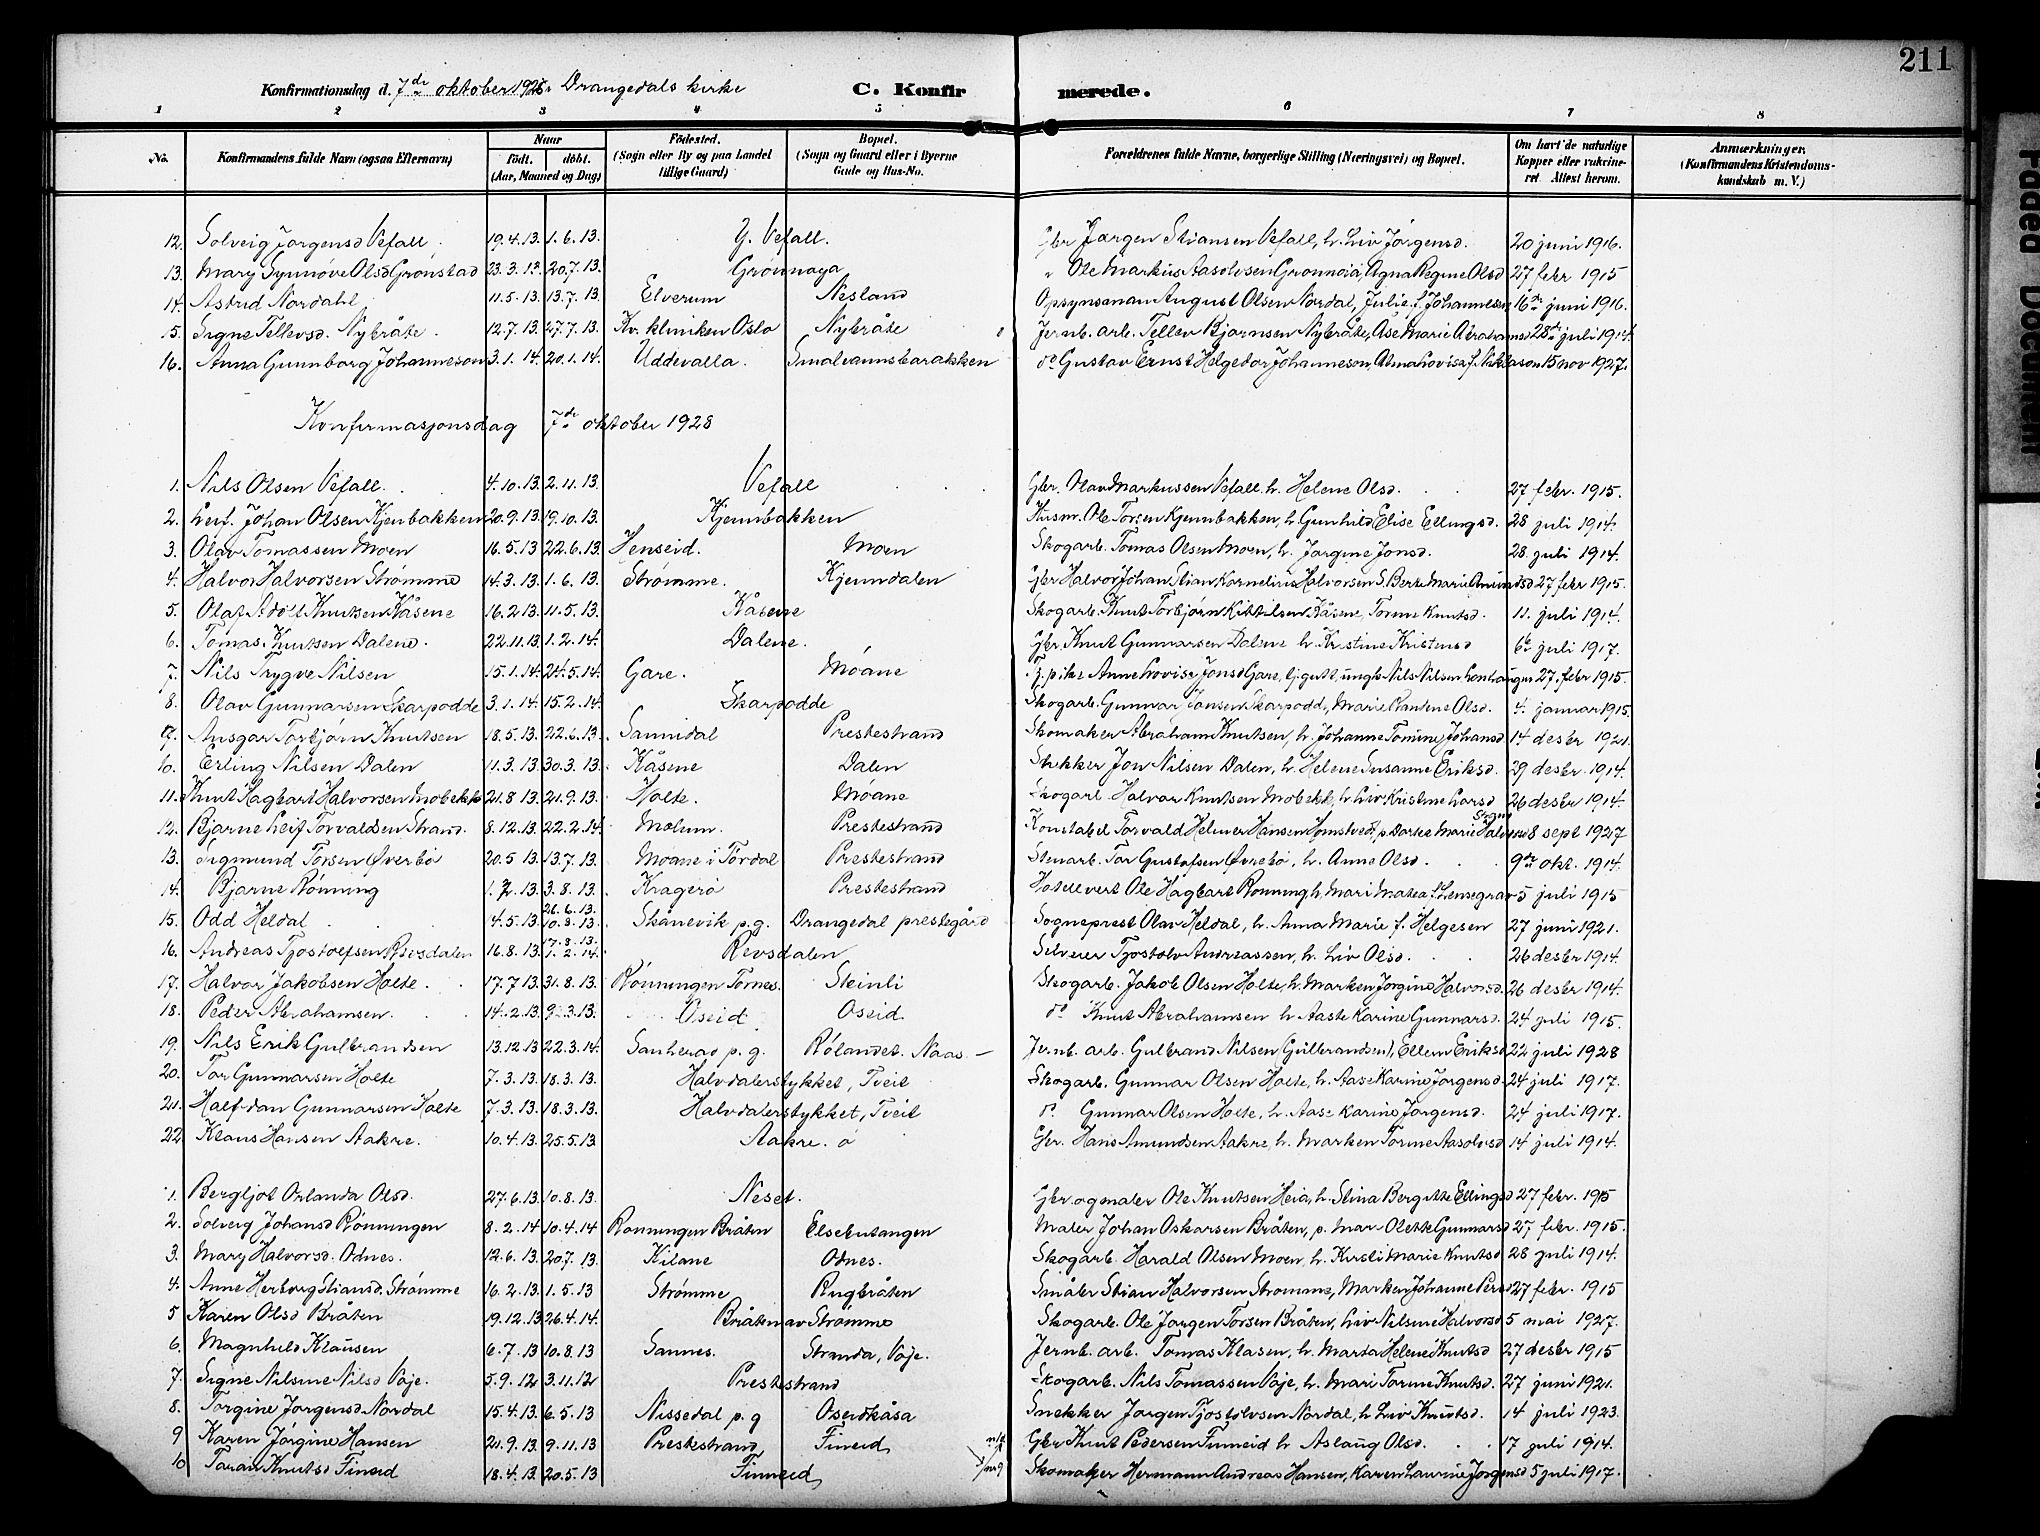 211
Konfirmationsdag d. 7de oktober 1928 Drangedals kirke C. Konfirmerede.
1 2 3 4 5 6 7 8
No. Konfirmandens fulde Navn (ogsaa Efternavn) Naar født. døbt. (Aar, Maaned og Dag) Fødested. (Sogn eller By og paa Landet tillige Gaard) Bopæl. (Sogn og Gaard eller i Byerne Gade og Hus-No. Forældrenes fulde Navne, borgerlige Stilling (Næringsvei) og Bopæl. Om havt de naturlige Kopper eller vakcineret Attest herom. Anmærkninger. (Konfirmandens Kristendomskundskab m. V.)
12. Solveig Jørgensd Vefall. 19.4.13. 1.6.13. Y. Vefall. Gbr Jørgen Stiansen Vefall, h. Liv Jørgensd. 20 juni 1916.
13. Mary Synnøve Olsd Grønstad 23.3.13. 20.7.13. Grønnøya " Ole Markus Aasolvsen Grønnøiå, Agna Regine Olsd 27 febr 1915
14. Astrid Nordahl 11.5.13. 13.7.13. Elverum Nesland Opsynsman August Olsen Nordal, Julie f. Johannesen 16de juni 1916.
15. Signe Tellevsd. Nybråte. 12.7.13. 27.7.13. Kv. kliniken Oslo Nybråte Jernb. arb. Tellev Bjørnsen Nybråte, Åse Marie Abrahamsd 28de juli 1914.
16. Anna Gunnborg Johanneson 3.1.14. 20.1.14. Uddevalla. Smalvannsbarakken do Gustav Ernst Helgedor Johanneson, Alma Lovisa f. Niklason 15 nov 1927.
Konfirmasjonsdag 7de oktober 1928
1. Nils Olsen Vefall. 4.10.13. 2.11.13. Vefall Gbr. Olav Markussen Vefall. h. Helene Olsd. 27 febr. 1915.
2. Leif. Johan Olsen Kjenbakken 20.9.13. 19.10.13. Kjennbakken Husm. Ole Torsen Kjennbakken, h. Gunhild Elise Ellingsd. 28 juli 1914.
3. Olav Tomassen Moen 16.5.13 22.6.13. Henseid. Moen Skogarb. Tomas Olsen Moen, h. Jørgine Jonsd. 28. juli 1914.
4. Halvor Halvorsen Strømme 14.3.13. 1.6.13. Strømme. Kjenndalen Gbr Halvor Johan Stian Kornelius Halvorsen S. Berte Marie Amundsd 27 febr 1915.
5. Olaf Adolf Knutsen Kåsene 16.2.13. 11.5.13. Kåsene Skogarb. Knut Torbjørn Kittilsen Kåsene, Torine Knutsd. 11. juli 1914.
6. Tomas. Knutsen Dalene. 22.11.13. 1.2.14. Dalene. Gbr. Knut Gunnarsen Dalene h. Kristine Kristensd 6te juli 1917.
7. Nils Trygve Nilsen 15.1.14. 24.5.14. Gare. Moane Tj. pike Anne Lovise Jonsd Gare, tj. gutt, ungk Nils Nilsen 27. febr 1915.
8. Olav Gunnarsen Skarpodde 3.1.14. 15.2.14. Skarpodde Skogarb. Gunnar Jansen Skarpodd, Marie Olsd. 4. januar 1915.
9. Ansgar Torbjørn Knutsen 18.5.13. 22.6.13. Sannidal Prestestrand Skomaker Abraham Knutsen, h. Johanne Tomine Johansd 14 desbr 1921.
10. Erling Nilsen Dalen 11.3.13. 30.3.13. Kåsene Dalen Snekker Jon Nilsen Dalen, h. Helene Susanne Eriksd. 29 desbr. 1914.
11. Knut Hagbart Halvorsen Mobekk 21.8.13. 21.9.13. Holte. Moane Skogarb. Halvor Knutsen Mobekk, h. Liv Kristine Larsd 26 desbr 1914.
12. Bjarne Leif Torvaldsen Strand. 8.12.13. 22.2.14. Molum. Prestestrand Konstabel Torvald Helmer Hansen Homstvedt, p. Dortea Marie Halvorsd 8 sept 1927
13. Sigmund Torsen Øverbø 20.5.13. 13.7.13. Moane i Tørdal Prestestrand Stenarb. Tor Gustafsen Øvrebø, h. Anne Olsd. 9de okt. 1914.
14. Bjarne Rönning 1.7.13. 3.8.13. Kragerø Prestestrand Hotellvert Ole Hagbart Rønning h. Mari Matea f. Lensegrav 5 juli 1915
15. Odd Heldal 4.5.13. 26.6.13. 10.8.13. Skånevik p.g. Drangedal prestegård Sogneprest Olav Heldal, h. Anna Marie f. Helgesen 27 juni 1921.
16. Andreas Tjostolfsen Revsdalen 16.8.13. 17.8.13. 1.2.14. Revsdalen Selveier Tjostolv Andreassen, h. Liv Olsd. 26 desbr 1914.
17. Halvor Jakobsen Holte. 17.7.13. 31.8.13. Rønningen Tornes. Steinli Skogarb. Jakob Olsen Holte, h. Marken Jørgine Halvorsd. 26 desbr 1914.
18. Peder Abrahamsen. 14.2.13. 9.3.13. Oseid Oseid. do Knut Abrahamsen h Aaste Karine Gunnarsd. 24 juli 1915.
19. Nils Erik Gulbrandsen 13.12.13 22.3.14. Sauherad p.g. Rølandet. Naas. — Jernb. arb. Gulbrand Nilsen (Gulbrandsen), Ellen Eriksd 22 juli 1928
20. Tor Gunnarsen Holte 7.3.13. 18.3.13. Halvdalerstykket, Tveit Skogarb. Gunnar Olsen Holte, h. Aase Karine Jørgensd. 24 juli 1917.
21. Halfdan Gunnarsen Holte 7.3.13. 18.3.13. Halvdalerstykket, Tveit do. Gunnar Olsen Holte, h. Aase Karine Jørgensd. 24 juli 1917.
22. Klaus Hansen Aakre. 10.4.13. 25.5.13. Aakre. ø Gbr. Hans Amundsen Aakre, h. Marken Torine Aasolvsd 14 juli 1914.
1. Bergljot Orlanda Olsd. 27.6.13. 10.8.13. Neset. Gbr. og maler Ole Knutsen Heia, h. Stina Bergitte Ellingsd 27 febr. 1915
2. Solveig Johansd Rønningen 8.2.14 10.4.14 Rønningen Bråten Elsebutangen Maler Johan Oskarsen Bråten, p. Mar. Olette Gunnarsd 27 febr. 1915.
3. Mary Halvorsd. Odnes. 12.6.13. 20.7.13. Kilane Odnes. Skogarb. Harald Olsen Moen, h. Kirsti Marie Knutsd 28 juli 1914.
4. Anne Herborg Stiansd. Strømme 16.2.13. 1.5.13 Strømme Rugbråten Småbr Stian Halvorsen Strømme, Marken Johanne Persd 27 febr. 1915
5 Karen Olsd Bråten 19.12.13 26.4.14. Bråten av Strømme Skogarb. Ole Jørgen Torsen Bråten, Liv Nilsine Halvorsd 5 mai 1927.
6. Magnhild Klausen 6.7.13 10.8.13 Sannes. Stranda, Voje. Jernb. arb. Tomas Klasen, h. Marta Helene Knutsd 27 desbr 1915
7. Signe Nilsine Nilsd Voje. 5.9.12 3.11.12 Prestestrand Skogarb. Nils Tomassen Voje, h. Mari Torine Knutsd. 27 juni 1921.
8. Torgine Jørgensd Nordal 15.4.13. 6.5.13 Nissedal p.g Oseidkåsa Snekker Jørgen Tjostolvsen Nordal, h Liv Knutsd. 14 juli 1923.
9 Karen Jørgine Hansen 21.9.13. 9.11.13 Prestestrand Fineid, Gbr Knut Pedersen Finneid h Aslaug Olsd. 17 juli 1914.
10 Taran Knutsd Fineid 18.4.13. 20.5.13 Finneid, nr 9 Skomaker Hermann Andreas Hansen, Karen Laurine Jørgensd 5 juli 1917.